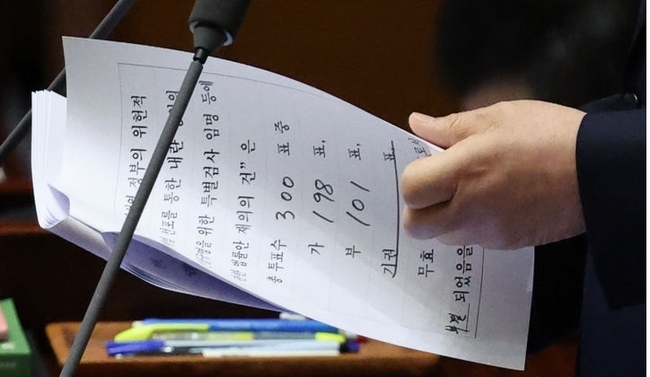 정부의 위헌적
선포를 통한 내란
위한 특별검사 임명 등에
관한 법률안 재의의 건” 은
총투표수 300 표 중
가 198 표,
부 101 표,
기권 표
무효
부결 되었음을